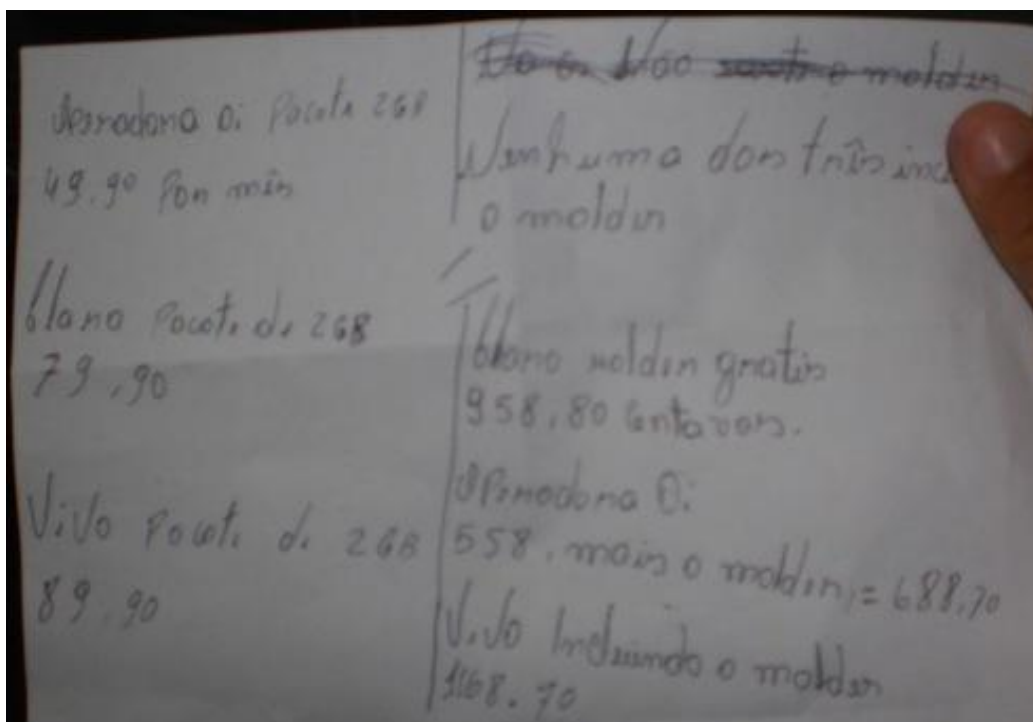 Operadona Oi Pacote 2GB
49.90 Pon mês
Clano Pacote de 2GB
79.90
Vivo Pacote de 2GB
89.90
Não o molden
Nenhuma dos três
o molden
Clano molden gratis
958,80 Centavos.
Openadona Oi
558, mais o molden, = 688,70
Vivo Incluindo o molden
1168.70